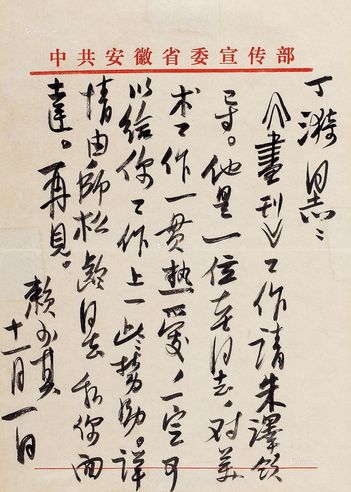 中共安徽省委宣传部
丁漪同志:
《畫刊》工作請朱澤领
导。他是一位老同志,对美
术工作一贯热爱,一定可
以给你工作上一些帮助。详
情由師松龄同志和你面
達。再見。
赖少其
十一月一日